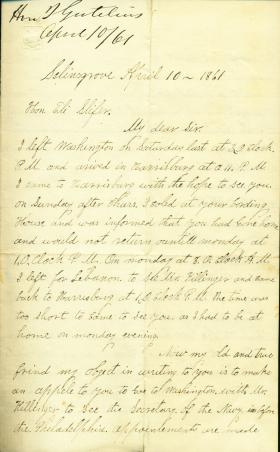 Hon J Gutelius
April 10/61
Selinsgrove April 10 – 1861
Hon. Eli Slifer.
My dear Sir.
I left Washington on Saturday last at 3 O Clock
P.M. and arived in Harrisburg at P.M.
I came to Harrisburg with the hope to see you.
on Sunday after I coled at your bording
House and was informed that you had Gone home
and would not return ountill monday at
1 O. Clock P.M. On monday at 8 O Clock A.M.
I left for Lebanon. to See Mr Killinger and came
back to Harrisburg at 1, O Clock P.M. the time was
two short to to See you. as I had to be at
home on monday evening.
Now my and true
frind my object in writing to you is to make
an appele to you to Go to Washington with Mr
Killinger to See the Secretary of the Navy before
the Philadelphia appointments are made